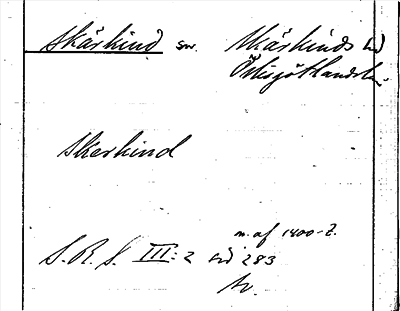 Skärkind sn. Skärkinds hd
Östergötlands län
Skerkind
m. af 1400-t.
S.R.S. III:2 sid 283